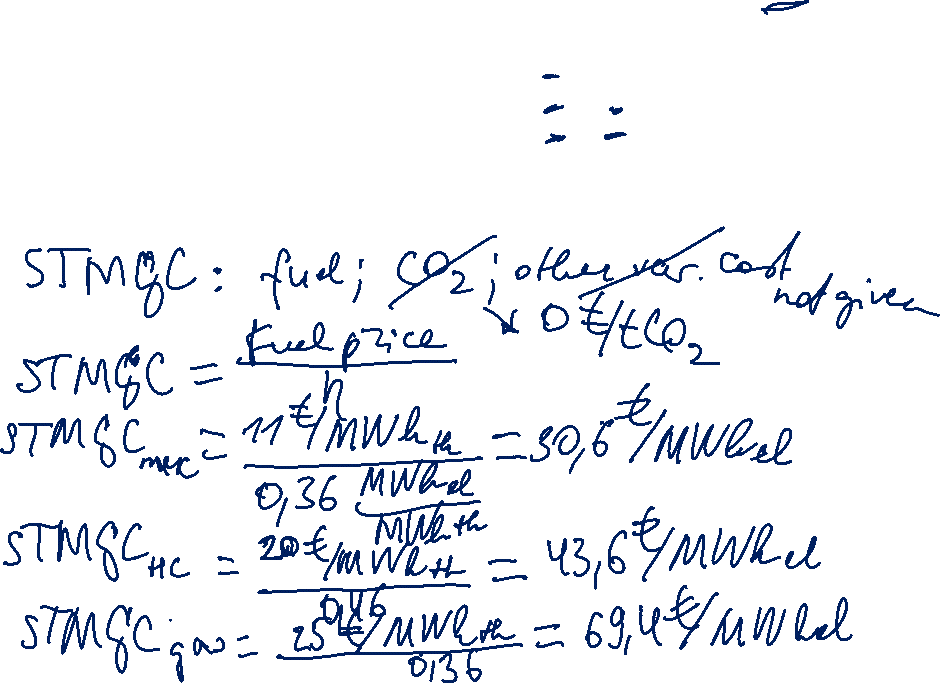 STMGC: fuel; CO2; other var. cost not given
→ 0 €/tCO2
STMGC = Fuel price / η
STMGC = 11 €/MWh th / 0,36 MWh el / MWh th = 30,6 €/MWh el
STMGC HC = 20 €/MWh th / 0,46 = 43,6 €/MWh el
STMGC gas = 25 €/MWh th / 0,36 = 69,4 €/MWh el